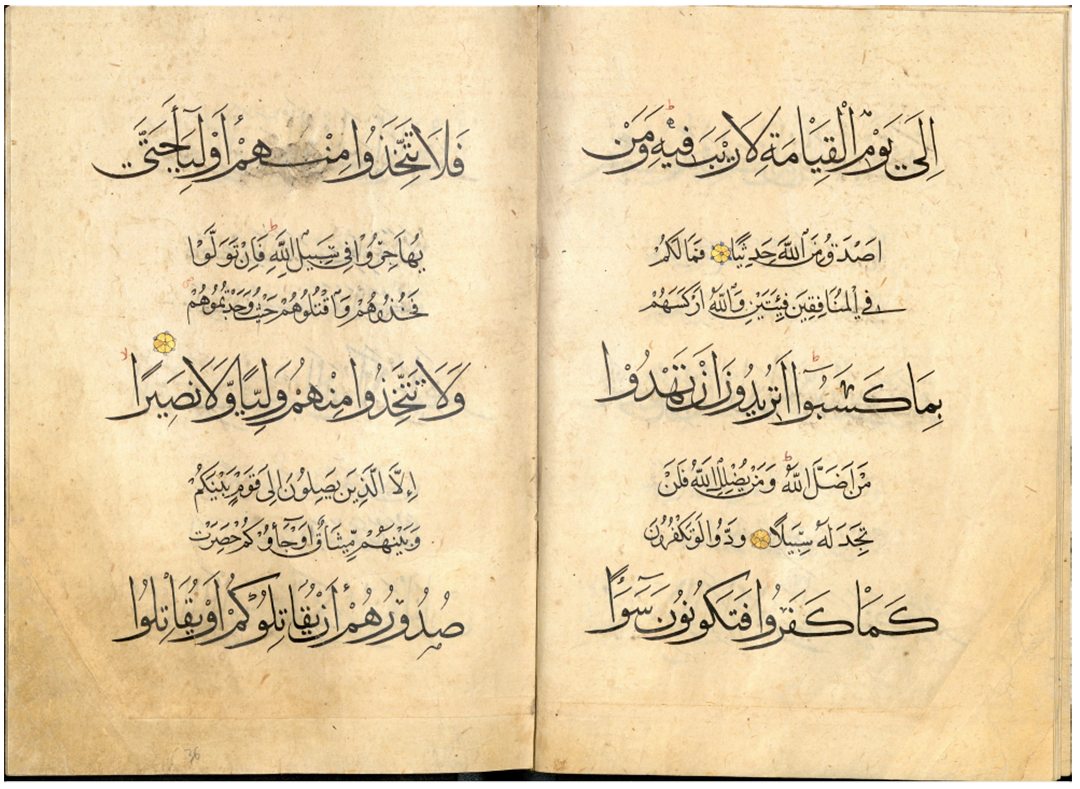 إِلَىٰ يَوْمِ الْقِيَامَةِ لَا رَيْبَ فِيهِ وَمَنْ
اَصْدَقُ مِنَ اللَّهِ حَدِيثًا فَمَا لَكُمْ
فِي الْمُنَافِقِينَ فِئَتَيْنِ وَاللَّهُ اَرْكَسَهُمْ
بِمَا كَسَبُوا اَتُرِيدُونَ اَنْ تَهْدُوا
مَنْ اَضَلَّ اللَّهُ وَمَنْ يُضْلِلِ اللَّهُ فَلَنْ
تَجِدَ لَهُ سَبِيلًا وَدُّوا لَوْ تَكْفُرُونَ
كَمَا كَفَرُوا فَتَكُونُونَ سَوَآءً
فَلَا تَتَّخِذُوا مِنْهُمْ أَوْلِيَآءَ حَتَّى
يُهَاجِرُوا فِي سَبِيلِ اللَّهِ فَاِنْ تَوَلَّوْا
فَخُذُوهُمْ وَاقْتُلُوهُمْ حَيْثُ وَجَدْتُمُوهُمْ
وَلَا تَتَّخِذُوا مِنْهُمْ وَلِيًّا وَّلَا نَصِيرًا
اِلَّا الَّذِينَ يَصِلُونَ اِلَى قَوْمٍ بَيْنَكُمْ
وَبَيْنَهُمْ مِّيثَاقٌ اَوْ جَآؤُكُمْ حَصِرَتْ
صُدُورُهُمْ أَنْ يُقَاتِلُوكُمْ اَوْ يُقَاتِلُوا
36